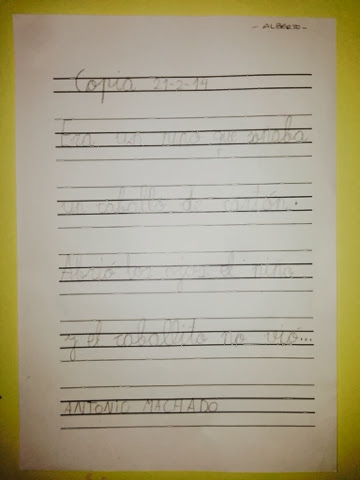 - ALBERTO -
Copia 21-2-14
Era un niño que soñaba
un caballo de cartón.
Abrió los ojos el niño
y el caballito no vió...
ANTONIO MACHADO